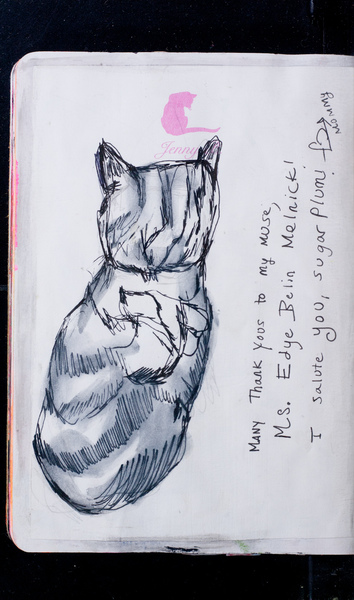 Jenny
MANY THANK YOUS to my muse,
Ms. Edye Belin Melnick!
I salute you, sugar Plum!
MOMMY